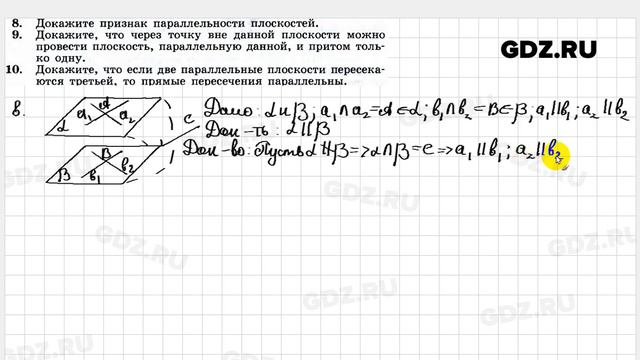 8. Докажите признак параллельности плоскостей.
9. Докажите, что через точку вне данной плоскости можно
провести плоскость, параллельную данной, и притом толь-
ко одну.
10. Докажите, что если две параллельные плоскости пересека-
ются третьей, то прямые пересечения параллельны.
GDZ.RU
8.
A
a₁ a₂
α
c
B
β b₁ b₂
Дано: α и β; a₁∩a₂=A∈α; b₁∩b₂=B∈β; a₁∥b₁; a₂∥b₂
Док-ть: α∥β
Док-во: Пусть α∦β=>α∩β=c=>a₁∥b₁; a₂∥b₂
GDZ.RU
GDZ.RU
GDZ.RU
GDZ.RU
GDZ.RU
GDZ.RU